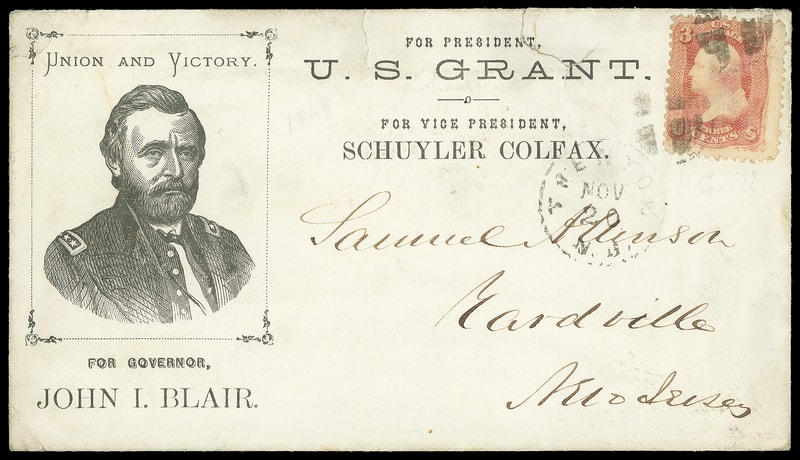 UNION AND VICTORY.
FOR GOVERNOR,
JOHN I. BLAIR.
FOR PRESIDENT,
U. S. GRANT.
FOR VICE PRESIDENT,
SCHUYLER COLFAX.
3
CENTS
TRENTON
NOV
20
N.J.
Samuel Atkinson
Yardville
New Jersey